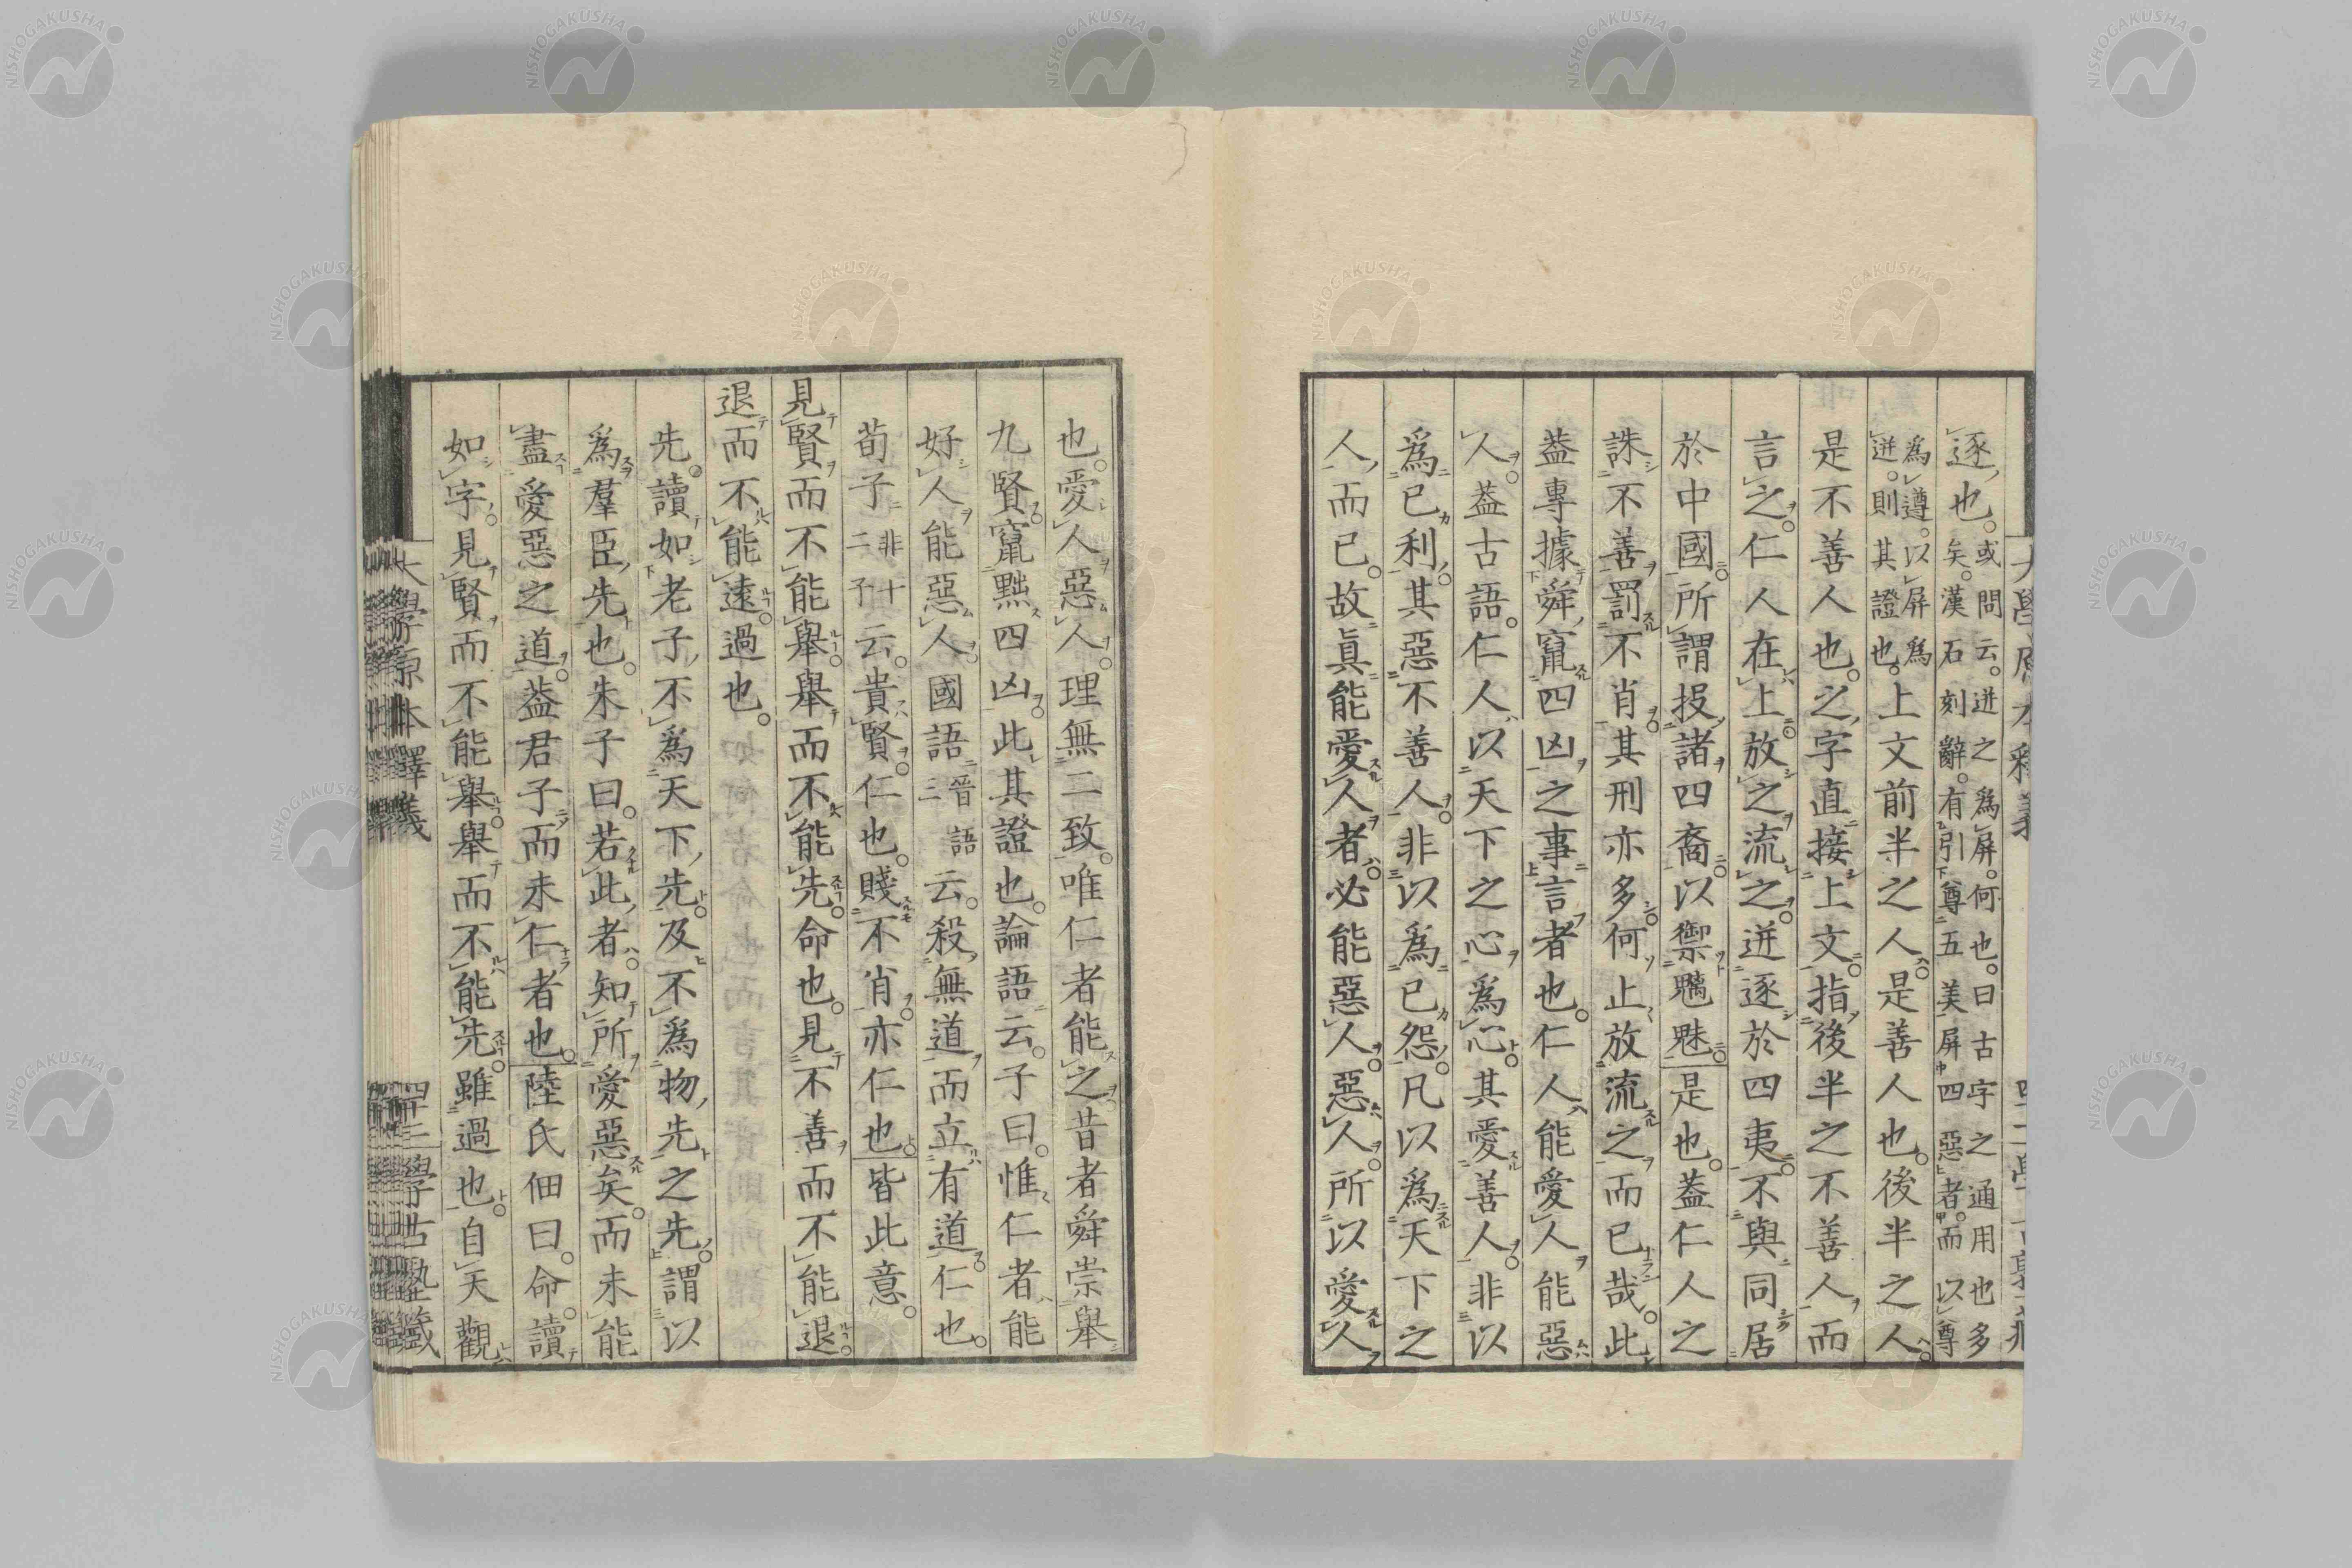 逐也。或問云。迸之爲屏。何也。曰古字之通用也多
矣。漢石刻辭。有引尊五美屏四惡者。而以尊
爲遵。以屏爲
迸。則其證也。上文前半之人。是善人也。後半之人。
是不善人也。之字直接上文。指後半之不善人而
言之。仁人在上。放之流之。迸逐於四夷。不與同居
於中國。所謂投諸四裔。以禦魑魅。是也。葢仁人之
誅不善罰不肖。其刑亦多。何止放流之而已哉。此
葢專據舜竄四凶之事言者也。仁人能愛人能惡
人。葢古語。仁人以天下之心爲心。其愛善人。非以
爲已利。其惡不善人。非以爲已怨。凡以爲天下之
人而已。故眞能愛人者。必能惡人。惡人。所以愛人
也。愛人惡人。理無二致。唯仁者能之。昔者舜崇舉
九賢。竄黜四凶。此其證也。論語云。子曰。惟仁者能
好人能惡人。國語晉語三云。殺無道而立有道。仁也。
荀子非十二子云。貴賢。仁也。賤不肖。亦仁也。皆此意。
見賢而不能舉。舉而不能先。命也。見不善而不能退。
退而不能遠。過也。
先讀如老子不爲天下先。及不爲物先之先。謂以
爲羣臣先也。朱子曰。若此者。知所愛惡矣。而未能
盡愛惡之道。葢君子而未仁者也。陸氏佃曰。命。讀
如字。見賢而不能舉。舉而不能先。雖過也。自天觀
大學原本釋義
四十三
學古塾藏